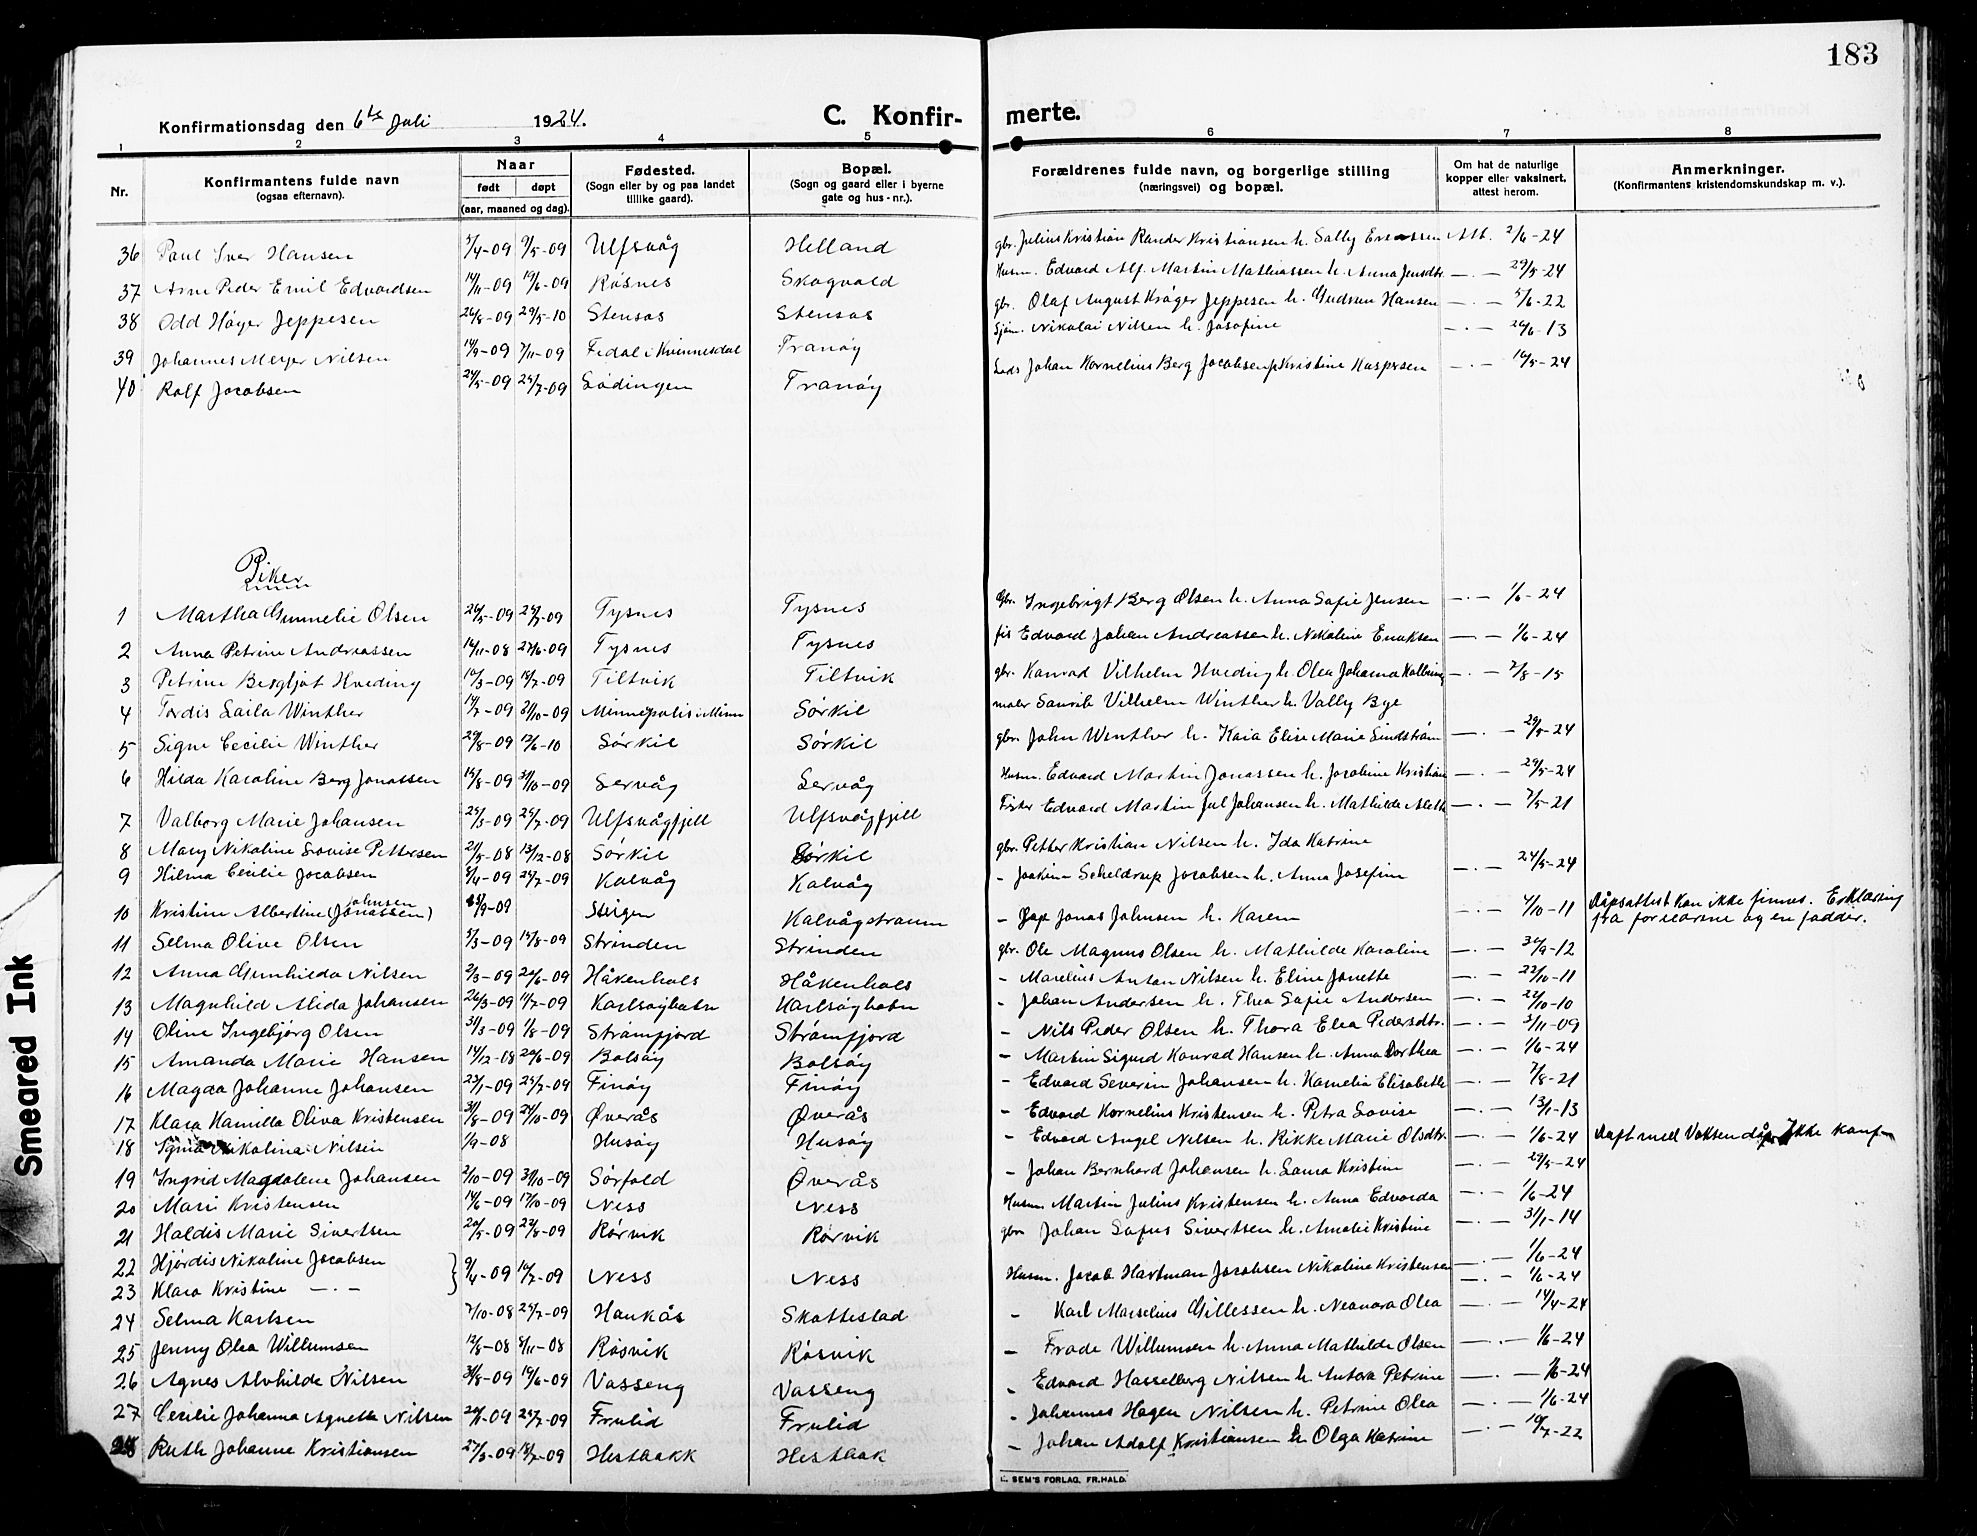 183
Konfirmationsdag den 6te Juli 1924.
C. Konfirmerte.
1 2 3 4 5 6 7 8
Nr. Konfirmantens fulde navn (ogsaa efternavn). Naar født døpt (aar, maaned og dag). Fødested. (Sogn eller by og paa landet tillike gaard). Bopæl. (Sogn og gaard eller i byerne gate og hus-nr.). Forældrenes fulde navn, og borgerlige stilling (næringsvei) og bopæl. Om hat de naturlige kopper eller vaksinert, attest herom. Anmerkninger. (Konfirmantens kristendomskundskap m. v.).
36 Paul Iver Hansen 5/4-09 9/5-09 Ulfsvåg Helland gbr. Julius Kristian Rander Kristiansen h. Sally Att. 2/6-24
37 Arne Peder Emil Edvardsen 14/11-09 Røsnes Skogvold Husm. Edvard Alf. Martin Mathiassen h. Anna Jensdtr. —·— 29/5-24
38 Odd Høyer Jeppesen 26/8-09 29/5-10 Stensås Stensås gbr. Olaf August Krøger Jeppesen h. Gudrun Hansen —·— 5/6-22
39 Johannes Meyer Nilsen 14/9-09 7/11-09 Fedal i Kvinnesdal Tranøy Sjøm. Nikolai Nilsen h. Josefine —·— 26/6-13
40 Rolf Jacobsen 24/5-09 25/7-09 Lødingen Tranøy Johan Kornelius Berg Jacobsen h Kristine Kaspersen —·— 16/5-24
Piker
1 Martha Gunnelie Olsen 26/5-09 Tysnes Tysnes Gbr. Ingebrigt Berg Olsen h. Anna Sofie Jensen —·— 1/6-24
2 Anna Petrine Andreassen 14/11-08 27/6-09 Tysnes Tysnes fis Edvard Johan Andreassen h. Nikoline Enoksen —·— 1/6-24
3 Petrine Bergljot Hveding 10/3-09 18/7-09 Tiltvik Tiltvik gbr. Konrad Vilhelm Hveding h. Olea Johanna Kolbing —·— 2/8-15
4 Tordis Laila Winther 14/7-09 31/10-09 Minnepolis i Minn Sørkil maler Sanrik Vilhelm Winther h. Vally Bye
5 Signe Cecilie Winther 29/8-09 12/6-10 Sørkil Sørkil gbr. John Winther h. Kaia Elise Marie Lindstrøm —·— 29/5-24
6 Hilda Karoline Berg Jonassen 15/8-09 31/10-09 Servåg Servåg Husm. Edvard Martin Jonassen h. Jocobine Kristian —·— 29/5-24
7 Valborg Marie Johansen 25/3-09 25/7-09 Ulfsvågfjell Ulfsvågfjell Fisker Edvard Martin Jul Johansen h. Mathilde Aleth —·— 7/5-21
8 Mary Nikoline Lovise Pettersen 21/5-08 13/12-08 Sørkil Sørkil gbr. Petter Kristian Nilsen h. Ida Katrine
9 Hilma Cecilie Jacobsen 8/4-09 25/7-09 Kalvåg Kalvåg - Joakim Scheldrup Jacobsen h. Anna Josefine —·— 24/5-24
10 Kristine Albertine (Jonassen) Johnsen /9-09 Steigen Kalvågstraumn - Jap Jonas Johnsen h. Karen —·— 4/10-11 Dåpsattest kan ikke finnes. Erklæring fra foreldrene og en fadder.
11 Selma Olive Olsen 5/3-09 15/8-09 Strinden Strinden gbr. Ole Magnus Olsen h. Mathilde Karoline —·— 30/9-12
12 Anna Gunhilda Nilsen 2/3-09 20/6-09 Håkenhals Håkenhals - Marelius Anton Nilsen h. Eline Jonette —·— 22/10-11
13 Magnhild Alida Johansen 26/3-09 11/7-09 Karlsøyhavn Karlsøyhavn - Johan Andersen h. Thea Sofie Andersen —·— 22/10-10
14 Oline Ingebjørg Olsen 31/3-09 1/8-09 Strømfjord Strømfjord - Nils Peder Olsen h. Thora Elea Pedersdtr. —·— 3/11-09
15 Amanda Marie Hansen 14/12-08 20/6-09 Bolsøy Bolsøy - Martin Sigurd Konrad Hansen h. Anna Dorthea —·— 1/6-24
16 Magda Johanne Johansen 23/1-09 25/7-09 Finøy Finøy - Edvard Severin Johansen h. Kornelia Elisabeth —·— 7/8-21
17 Klara Kamilla Oliva Kristensen 31/8-09 24/10-09 Øverås Øverås - Edvard Kornelius Kristensen h. Petra Lovise —·— 13/1-13
18 Signa Nikolina Nilsen 1/9-08 Husøy Husøy - Edvard Angel Nilsen h. Rikke Marie Olsdtr. —·— 1/6-24 Døpt med Voksendåp Ikke konf
19 Ingrid Magdalene Johansen 2/10-09 31/10-09 Sørfold Øverås - Johan Bernhard Johansen h. Laura Kristine —·— 29/5-24
20 Mari Kristensen 14/6-09 17/10-09 Ness Ness Husm. Martin Julius Kristensen h. Anna Edvarda —·— 1/6-24
21 Haldis Marie Sivertsen 20/5-09 22/8-09 Rørvik Rørvik gbr Johan Sofus Sivertsen h. Amalie Kristine —·— 31/1-14
22 Hjørdis Nikoline Jacobsen } 9/4-09 Ness Ness Husm. Jacob Hartman Jacobsen Nikoline Kristensen —·— 1/6-24
23 Klara Kristine —·— —·— 1/6-24
24 Selma Karlsen 7/10-08 25/7-09 Haukås Skottestad - Karl Marselius Gillessen h. Neanora Olea —·— 14/4-24
25 Jenny Olea Willumsen 12/8-08 8/11-08 Røsvik Røsvik - Frode Willumsen h. Anna Mathilde Olsen —·— 1/6-24
26 Agnes Alvhilde Nilsen Vasseng Vasseng - Edvard Hasselberg Nilsen h. Antora Petrine —·— 1/6-24
27 Cecilie Johanna Agnette Nilsen 25/7-09 Frulid Frulid - Johannes Hagen Nilsen h. Petrine Olea —·— 1/6-24
28 Ruth Johanne Kristiansen 27/3-09 18/7-09 Hestbakk Hestbak - Johan Adolf Kristiansen h Olga Katrine —·— 10/7-22
SEM'S FORLAG, FR.HALD.
Smeared Ink